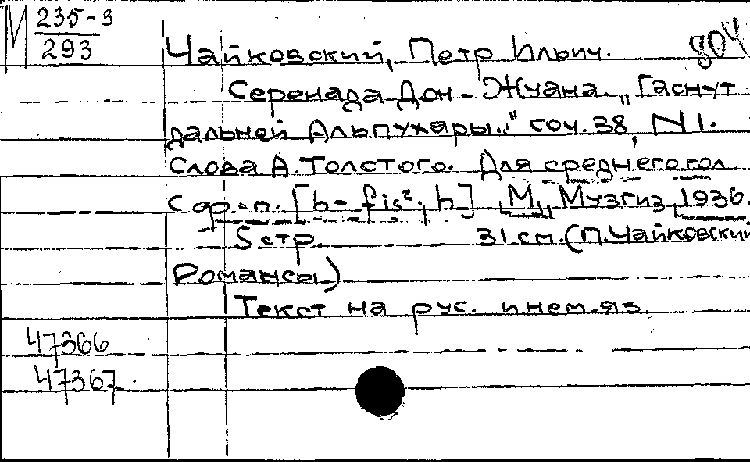 М 235-3
293
804
Чайковский, Петр Ильич.
Серенада Дон-Жуана „Гаснут
дальней Альпухары.." соч. 38, N 1.
Слова А. Толстого. Для среднего гол.
с фр.-п. [h - fis², h] М., Музгиз, 1936.
5 стр. 31 см. (П. Чайковский
Романсы)
Текст на рус. и нем. яз.
47366
47367